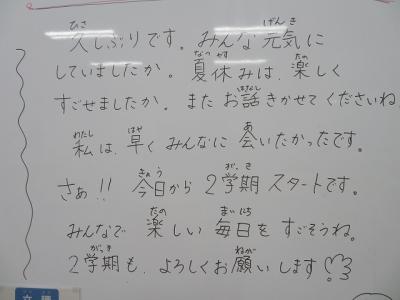 久しぶりです。みんな元気に
していましたか。夏休みは、楽しく
すごせましたか。またお話きかせてくださいね
私は、早くみんなに会いたかったです。
さぁ!! 今日から2学期スタートです。
みんなで楽しい毎日をすごそうね。
2学期も、よろしくお願いします♡